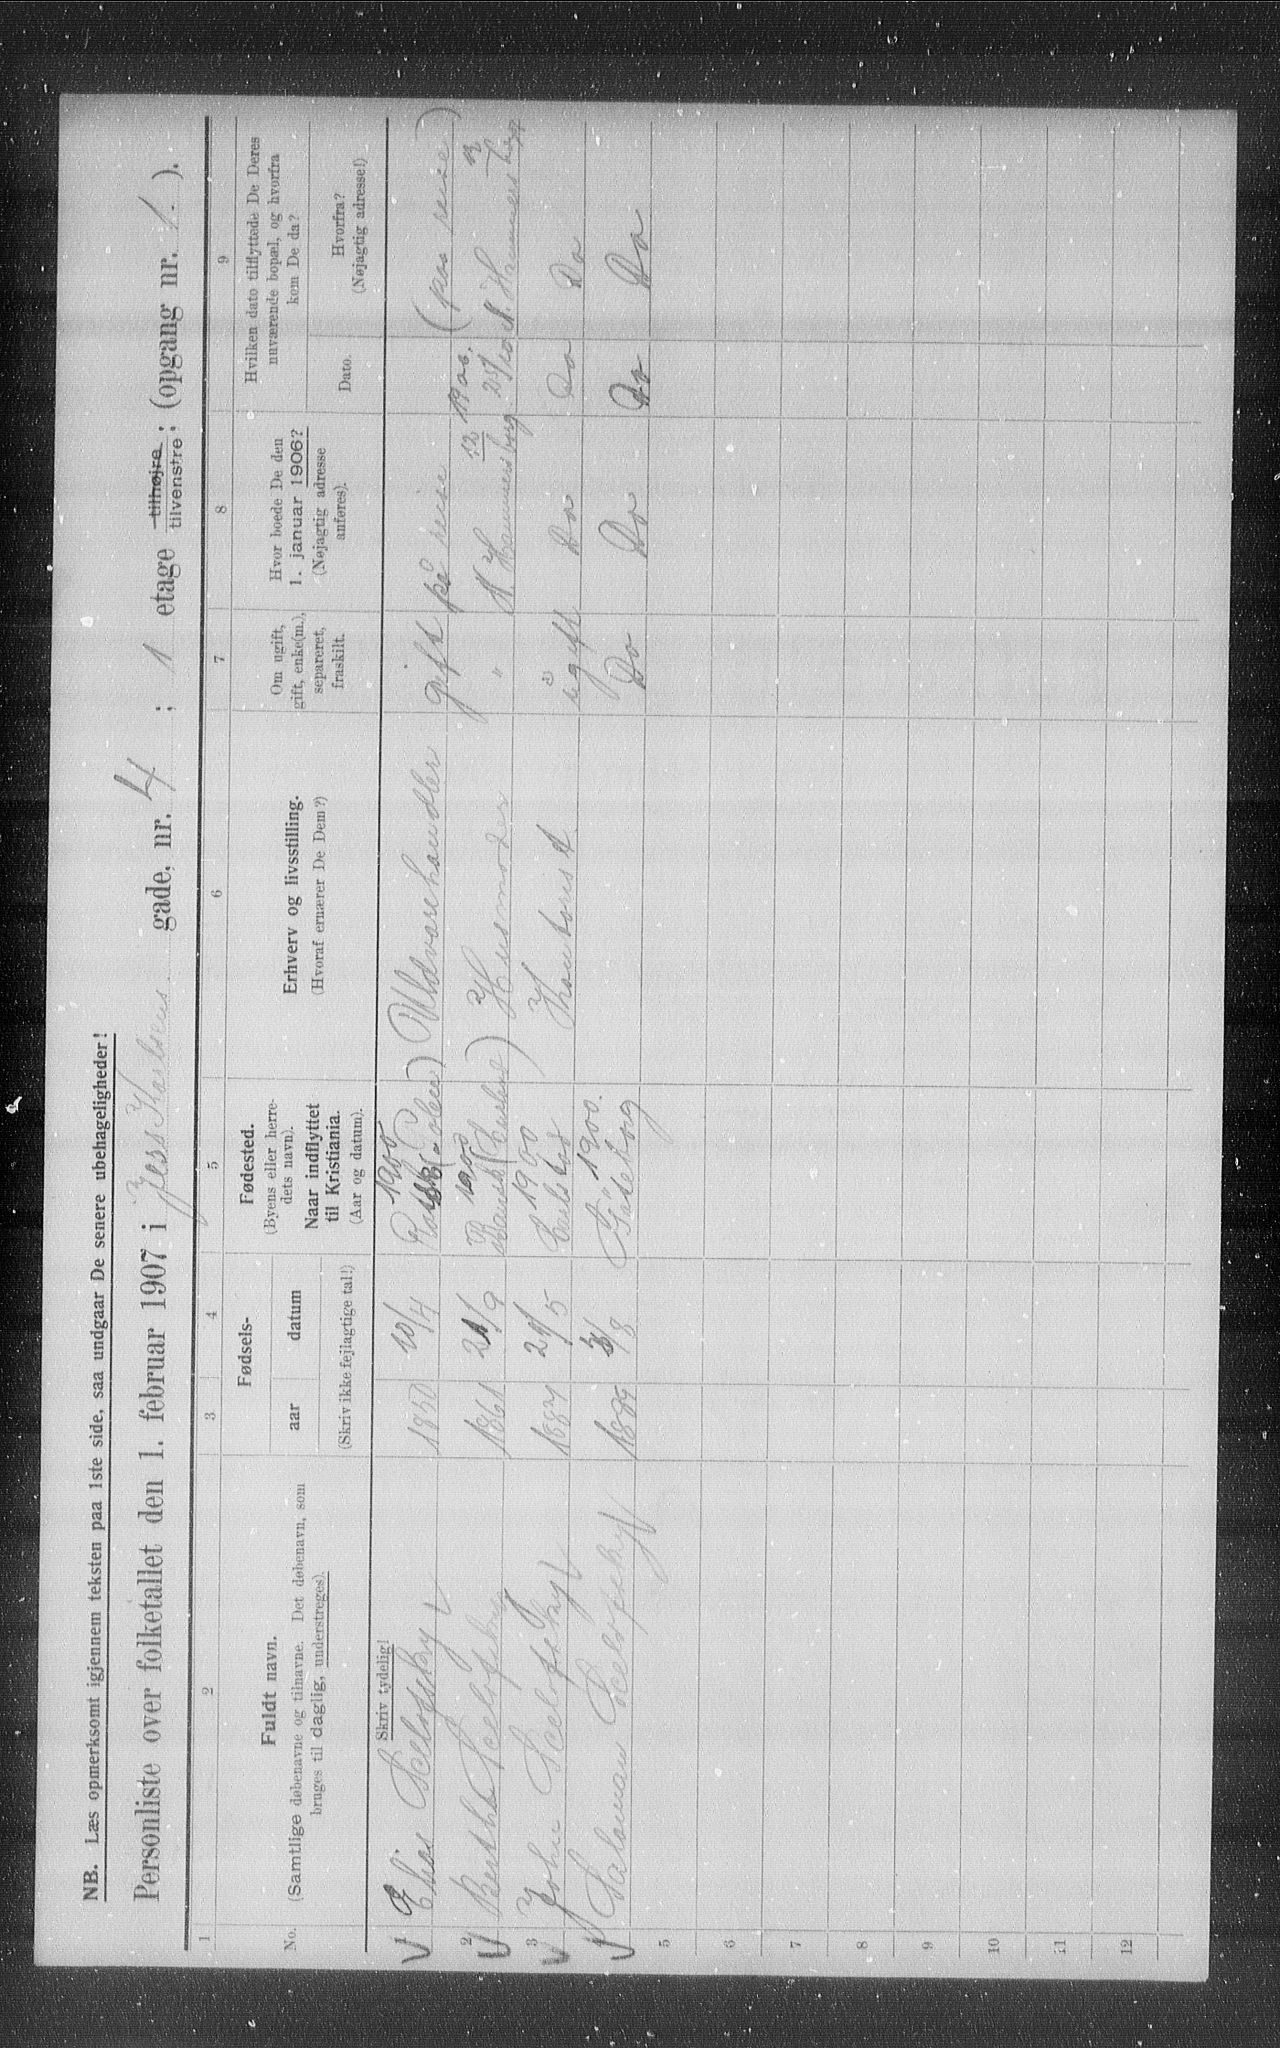 NB. Læs opmerksomt igjennem teksten paa 1ste side, saa undgaar De senere ubehageligheder!
Personliste over folketallet den 1. februar 1907 i Jess Karlsens gade, nr. 4 ; 1 etage tilhøjre tilvenstre ; (opgang nr. 1 ).
1 2 3 4 5 6 7 8 9
No.
Fuldt navn.
(Samtlige døbenavne og tilnavne. Det døbenavn, som
bruges til daglig, understreges).
Fødsels-
aar datum
(Skriv ikke fejlagtige tal!)
Fødested.
(Byens eller herre-
dets navn).
Naar indflyttet
til Kristiania.
(Aar og datum).
Erhverv og livsstilling.
(Hvoraf ernærer De Dem?)
Om ugift,
gift, enke(m.),
separeret,
fraskilt.
Hvor boede De den
1. januar 1906?
(Nøjagtig adresse
anføres).
Hvilken dato tilflyttede De Deres
nuværende bopæl, og hvorfra
kom De da?
Dato.
Hvorfra?
(Nøjagtig adresse!)
Skriv tydelig!
1 Elias 1850 10/4 1900 (Polen) Uldvarehandler gift på reise (paa reise)
2 Bertha 1861 /9 1900 Husmoder " N. Hammersborg 12 1906.
3 John 1887 21/5 1900 Kontorist ugift Do Do Do
Saloman 1889 3/8 Gøteborg 1900. Do Do Do Do
5
6
7
8
9
10
11
12